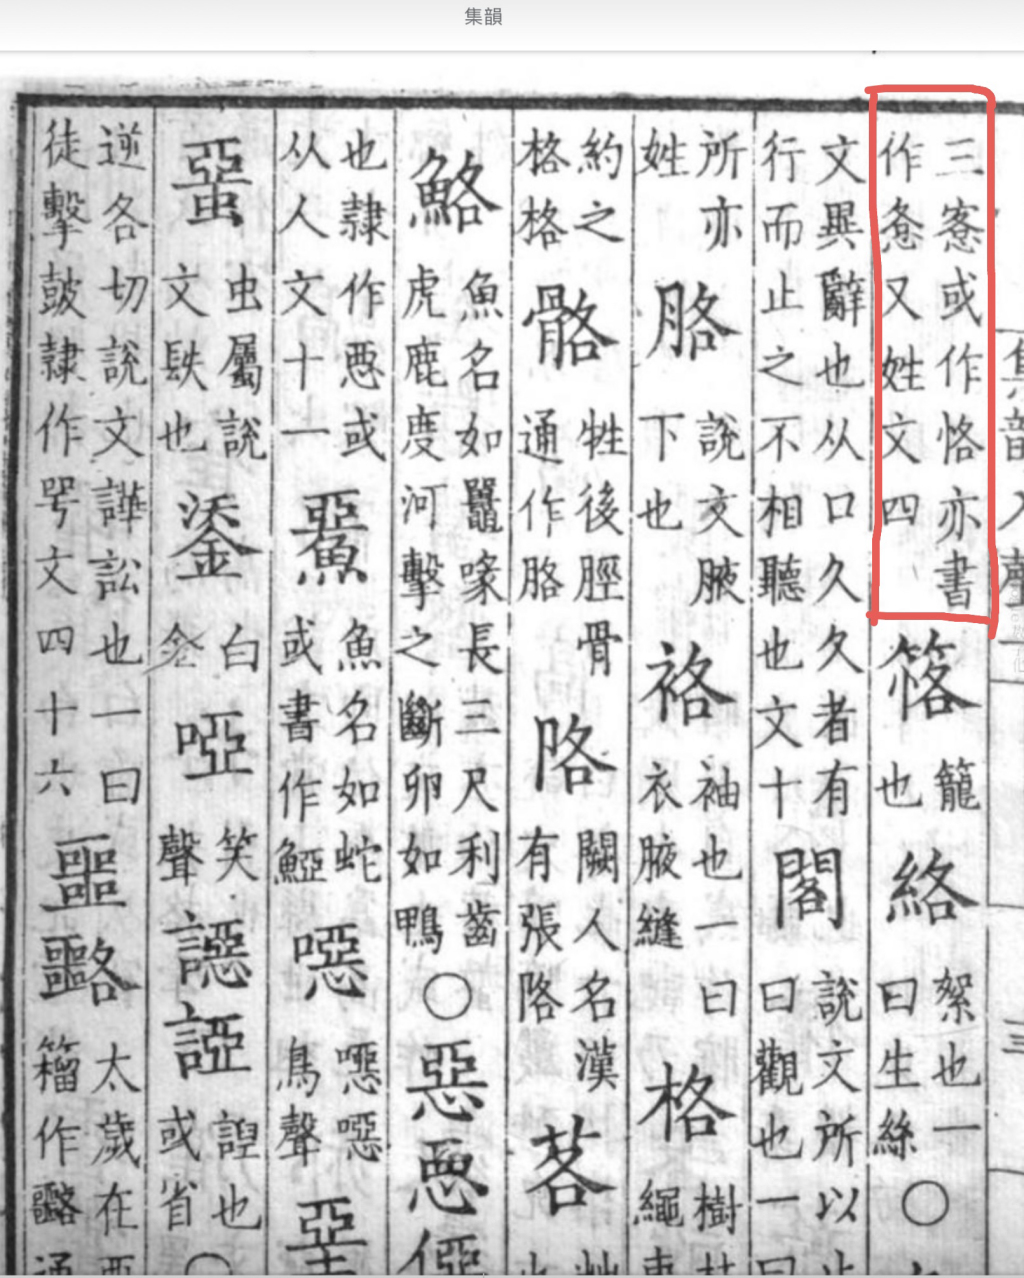 集韻
集韻入聲
三
三愙或作恪亦書作㤩又姓文四 笿 籠也 絡 絮也一曰生絲 ○
文異辭也从口久久者有行而止之不相聽也文十 閣 說文所以止曰觀也一曰
所亦姓 胳 說文亦腋下也 袼 袖也一曰衣腋縫 格 樹枝繩束
約之格格 骼 牲後脛骨通作胳 䧄 闕人名漢有張䧄 茖 艸也
鮥 魚名如鼉喙長三尺利齒虎鹿度河擊之斷卵如鴨 ○ 惡 悪 僫
也隸作悪或从人文十一 魚名如蛇或書作 噁 噁噁鳥聲 堊
蝁 虫屬說文镻也 鋈 白金 啞 笑聲 䛩 誈 也或省 ○
逆各切說文譁訟也一曰徒擊鼓隸作咢文四十六 噩 太歲在酉籀作 通